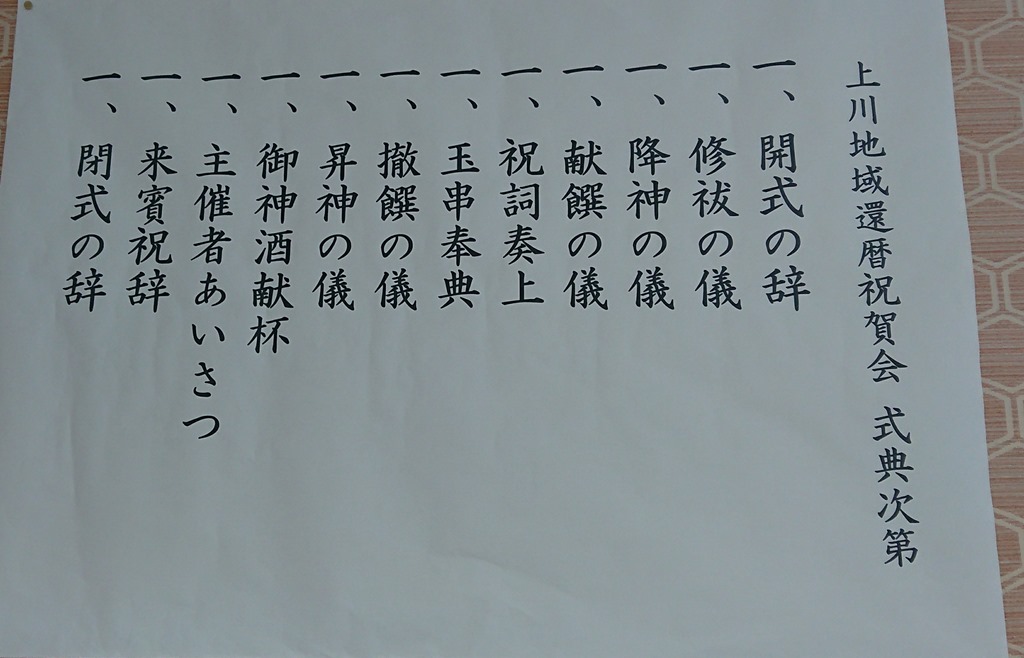 上川地域還暦祝賀会 式典次第
一、開式の辞
一、修祓の儀
一、降神の儀
一、献饌の儀
一、祝詞奏上
一、玉串奉典
一、撤饌の儀
一、昇神の儀
一、御神酒献杯
一、主催者あいさつ
一、来賓祝辞
一、閉式の辞